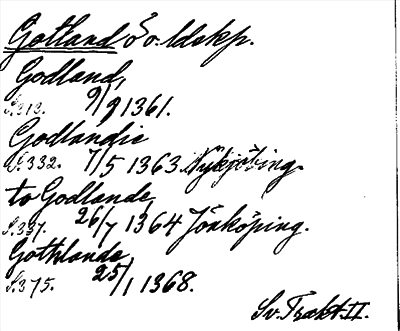 Gotland ö o. ldskp.
Godland,
S. 313. 9/9 1361.
Godlandie
S. 332. 7/5 1363. Nyköping.
to Godlande,
S. 337. 26/7 1364 Jönköping.
Gothlande,
S. 375. 25/1 1368.
Sv. Trakt. II.